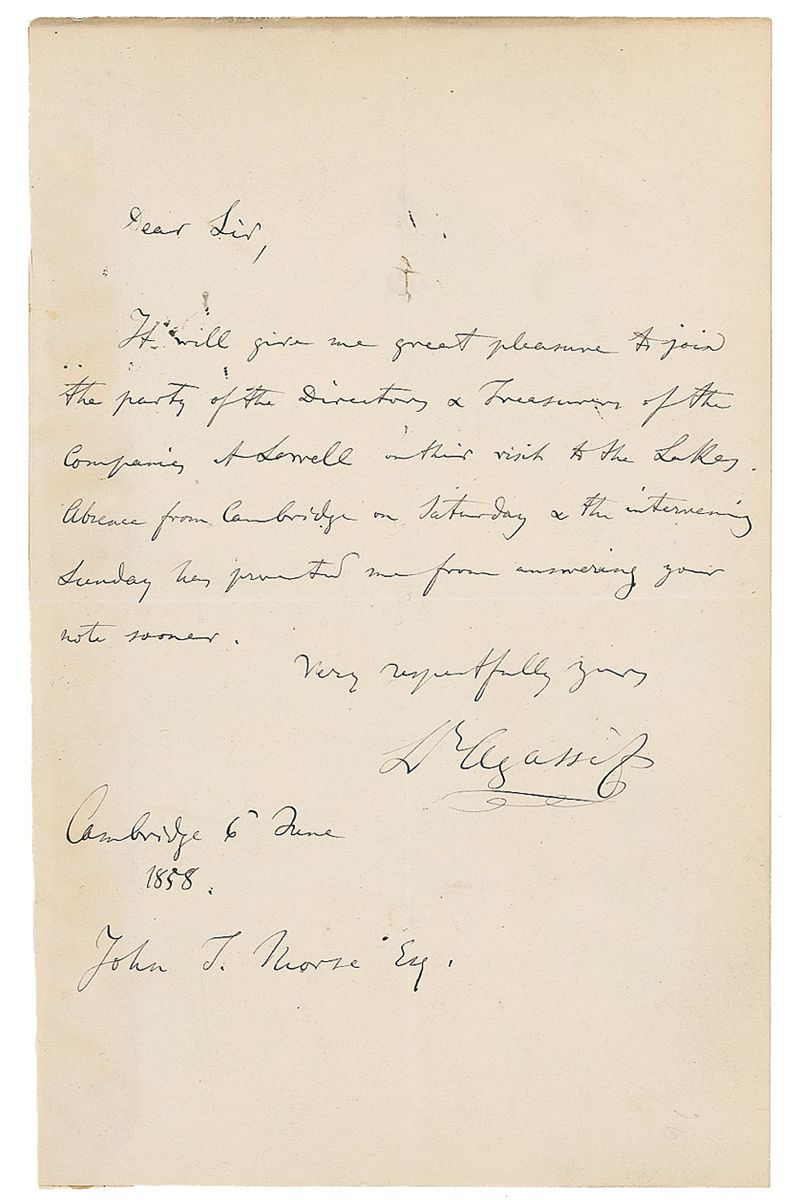 Dear Sir,
It will give me great pleasure to join
the party of the Directors & Treasurers of the
Companies at Lowell on their visit to the Lakes.
Absence from Cambridge on Saturday & the intervening
Sunday has prevented me from answering your
note sooner.
Very respectfully yours
Ls Agassiz
Cambridge 6 June
1858.
John T. Morse Esq.